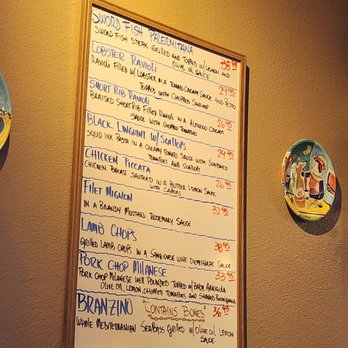 SWORD FISH PALERMITANA
SWORD FISH STEAK GRILLED AND TOPPED W/LEMON AND
OLIVE OIL SAUCE 35.95
LOBSTER RAVIOLI
RAVIOLI FILLED W/LOBSTER IN A TOMATO CREAM SAUCE AND PESTO
TOPPED WITH CHOPPED SHRIMP 29.95
SHORT RIB RAVIOLI
BRAISED SHORT RIB FILLED RAVIOLI IN A ALFREDO CREAM
SAUCE WITH CHOPPED TOMATOES 26.95
BLACK LINGUINI W/SCALLOPS
SQUID INK PASTA IN A CREAMY TOMATO SAUCE WITH SUNDRIED
TOMATOES AND SCALLOPS 29.95
CHICKEN PICCATA
CHICKEN BREAST SAUTEED IN A BUTTER LEMON SAUCE
WITH CAPERS 26.95
FILET MIGNON
IN A BRANDY MUSTARD ROSEMARY SAUCE 32.95
LAMB CHOPS
GRILLED LAMB CHOPS IN A SANGIOVESE WINE DEMIGLAZE SAUCE 38.95
PORK CHOP MILANESE 33.95
PORK CHOP MILANESE WELL POUNDED TOPPED W/BABY ARUGULA
OLIVE OIL, LEMON, CHOPPED TOMATOES AND SHAVED PARMIGIANA
BRANZINO "CONTAINS BONES" 36.95
WHOLE MEDITERRANEAN SEABASS GRILLED W/OLIVE OIL, LEMON
SAUCE